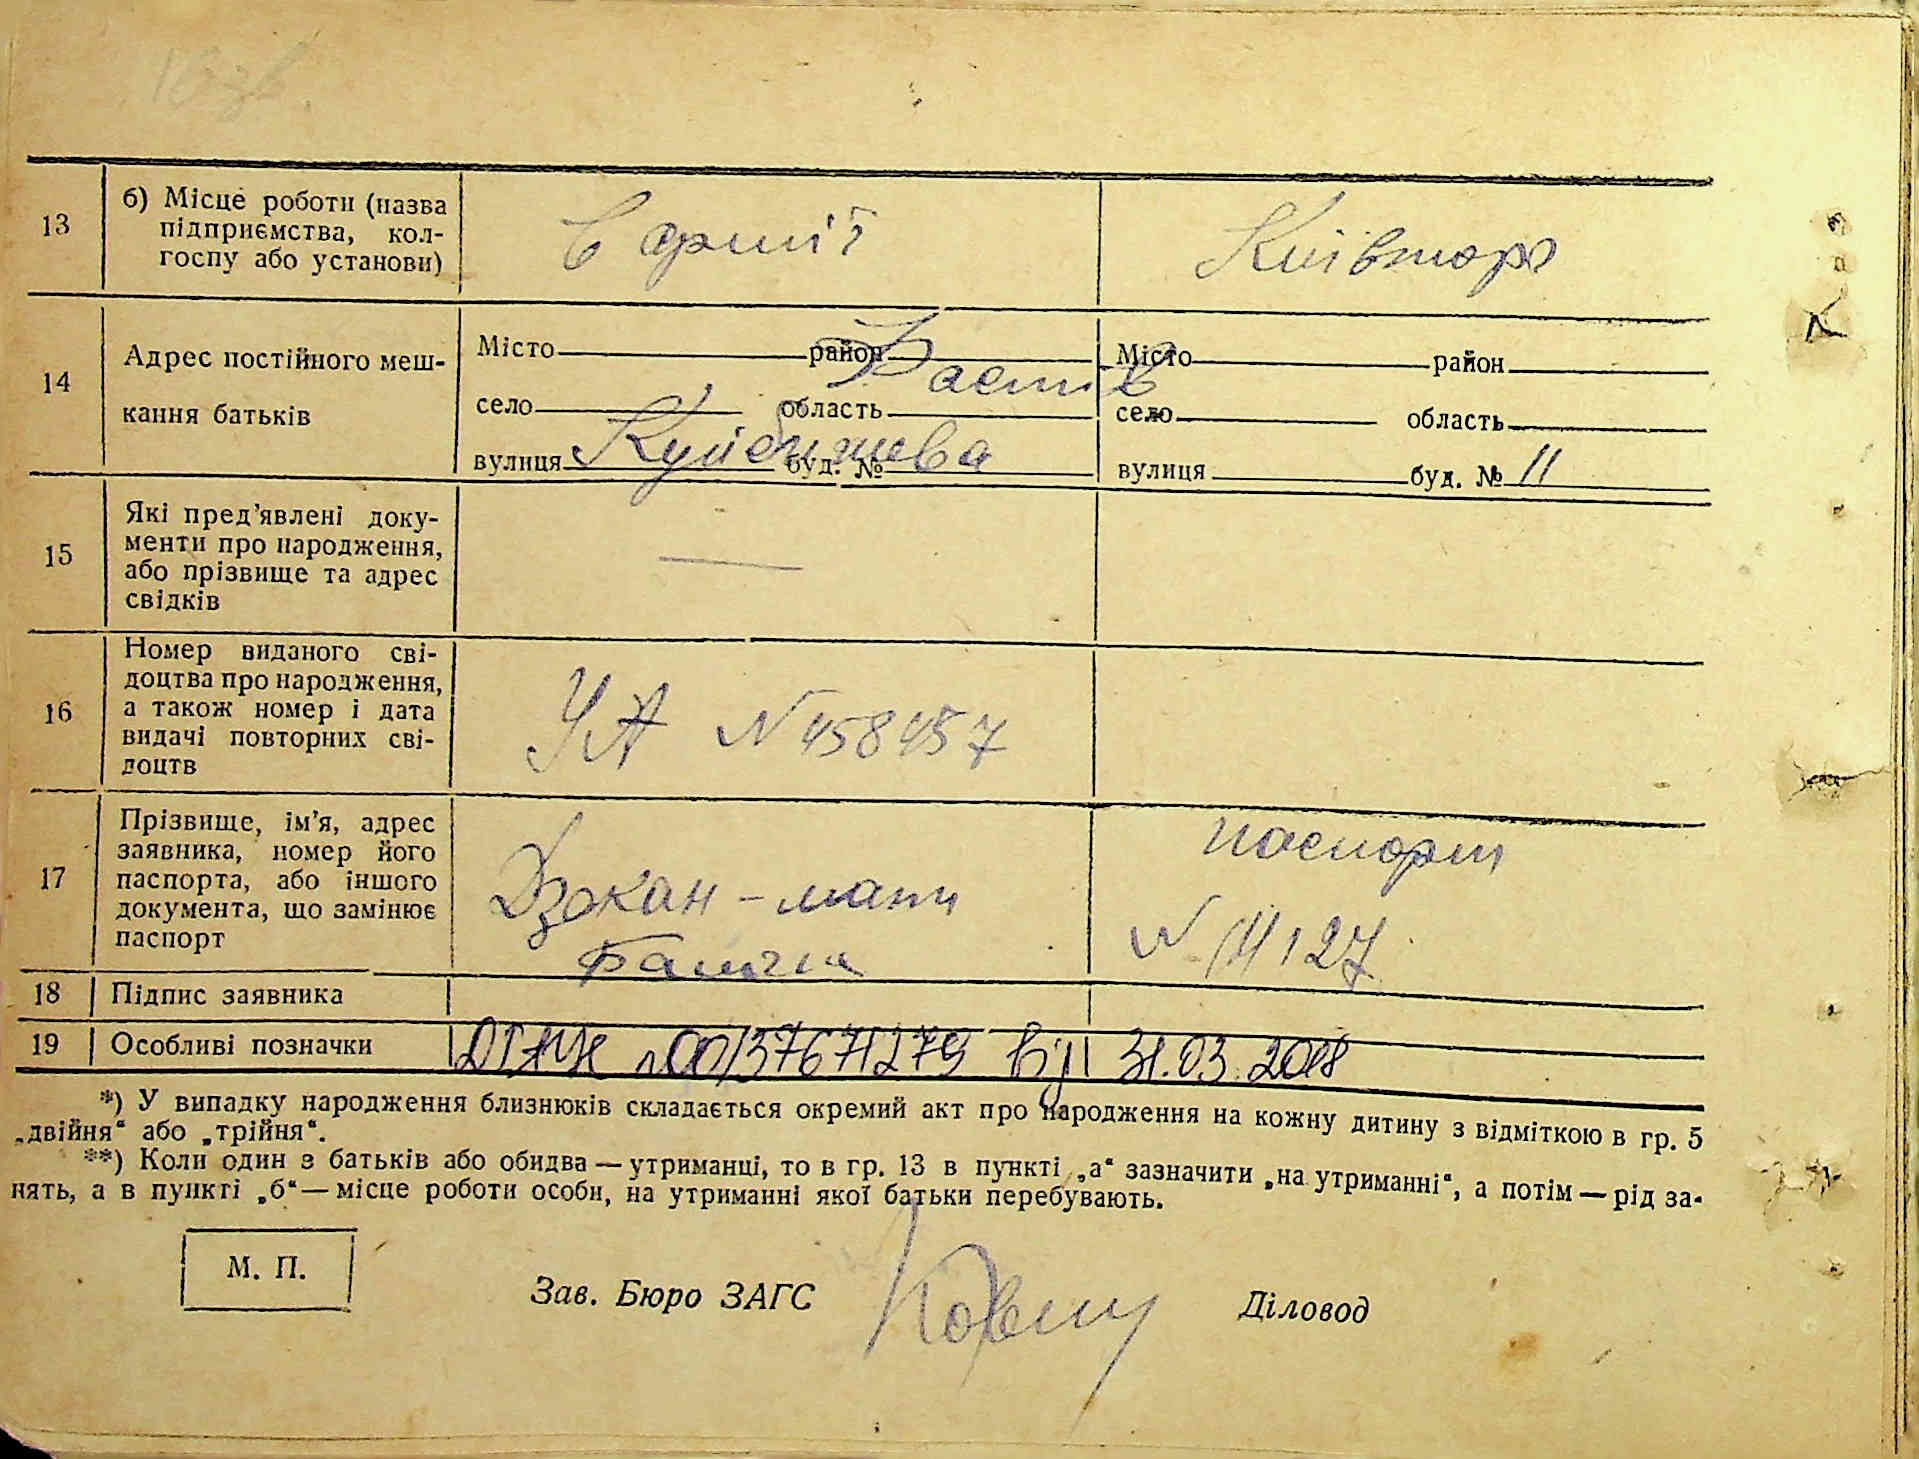 13
б) Місце роботи (назва
підприємства, кол-
госпу або установи)
в армії
Київторг
14
Адрес постійного меш-
кання батьків
Місто район Фастів
село область
вулиця Куйбишева буд. №
Місто район
село область
вулиця буд. № 11
15
Які пред’явлені доку-
менти про народження,
або прізвище та адрес
свідків
—
16
Номер виданого сві-
доцтва про народження,
а також номер і дата
видачі повторних сві-
доцтв
УА N 458457
17
Прізвище, ім’я, адрес
заявника, номер його
паспорта, або іншого
документа, що замінює
паспорт
Дзекан - мати
паспорт
18
Підпис заявника
19
Особливі позначки
00137671279 від 31.03.2018
*) У випадку народження близнюків складається окремий акт про народження на кожну дитину з відміткою в гр. 5
„двійня“ або „трійня“.
**) Коли один з батьків або обидва — утриманці, то в гр. 13 в пункті „а“ зазначити „на утриманні“, а потім — рід за-
нять, а в пункті „б“ — місце роботи особи, на утриманні якої батьки перебувають.
М. П.
Зав. Бюро ЗАГС
Діловод